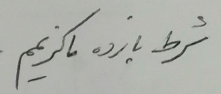 شرط یازده ماکزیمم